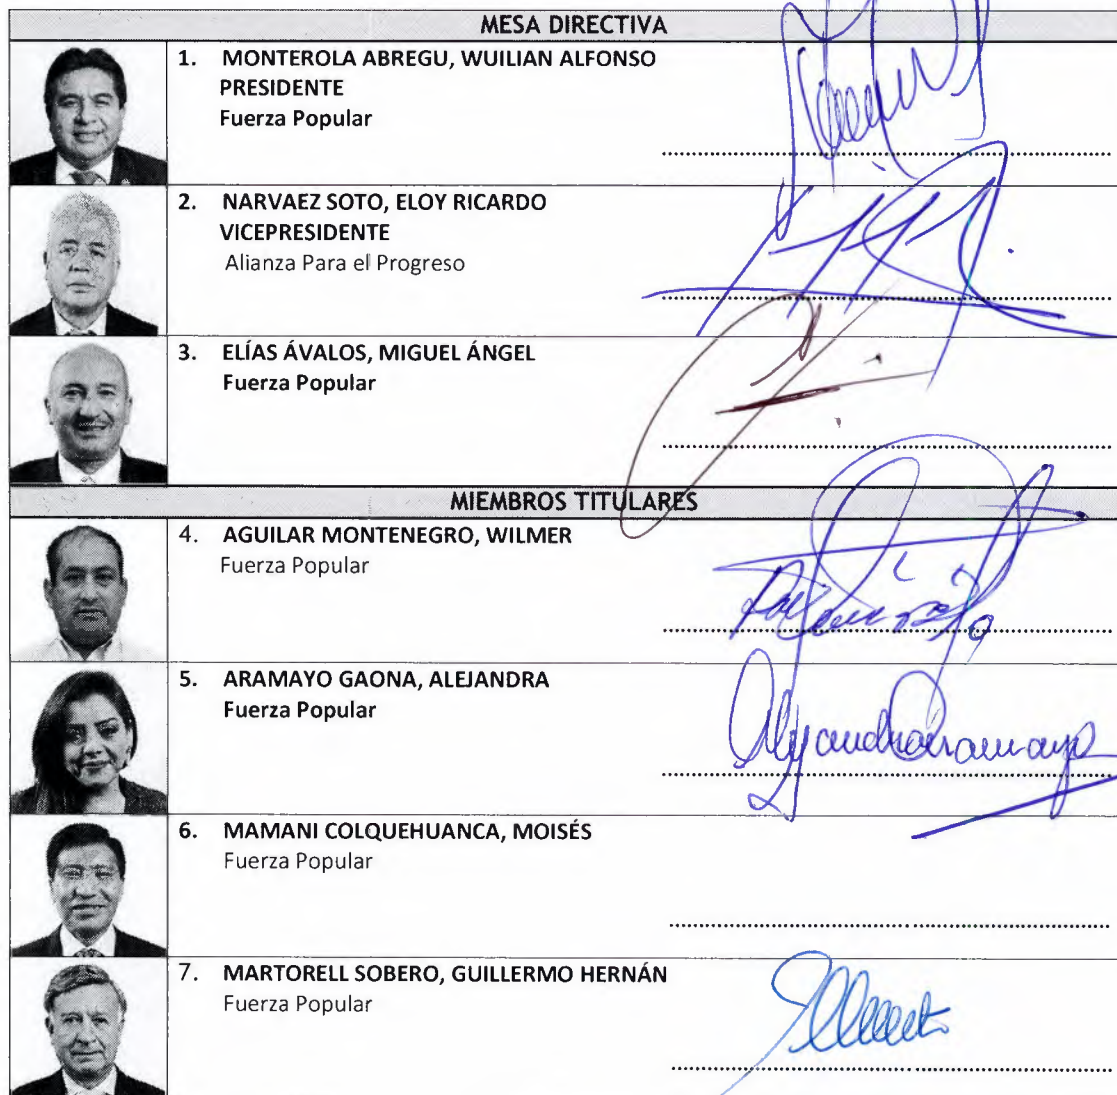 MESA DIRECTIVA
1. MONTEROLA ABREGU, WUILIAN ALFONSO
PRESIDENTE
Fuerza Popular
2. NARVAEZ SOTO, ELOY RICARDO
VICEPRESIDENTE
Alianza Para el Progreso
3. ELÍAS ÁVALOS, MIGUEL ÁNGEL
Fuerza Popular
MIEMBROS TITULARES
4. AGUILAR MONTENEGRO, WILMER
Fuerza Popular
5. ARAMAYO GAONA, ALEJANDRA
Fuerza Popular
6. MAMANI COLQUEHUANCA, MOISÉS
Fuerza Popular
7. MARTORELL SOBERO, GUILLERMO HERNÁN
Fuerza Popular